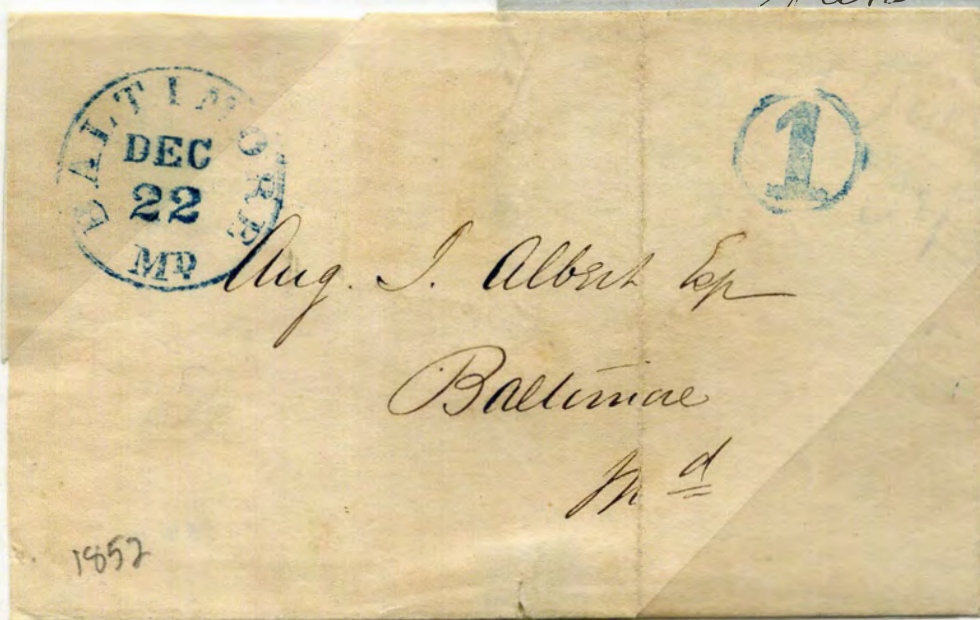 BALTIMORE
DEC
22
MD
1
Aug. J. Albert Esq
Baltimore
Md
1852